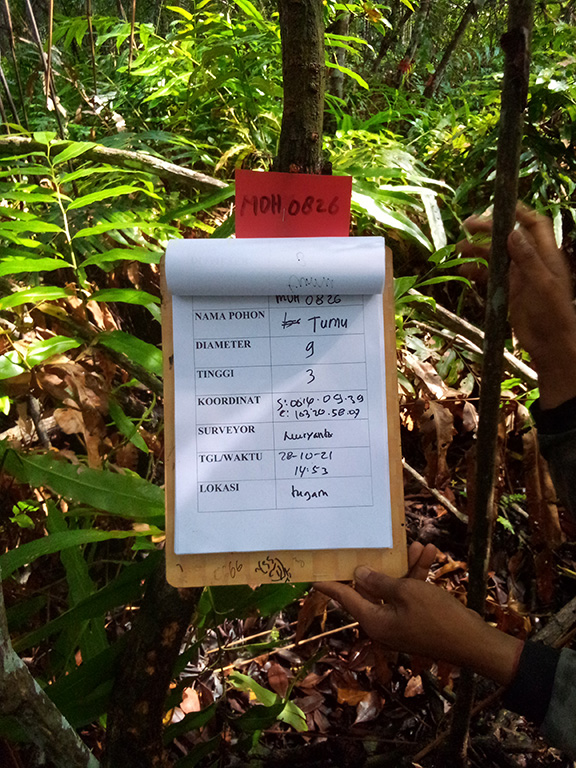 MOH 0826
MOH 0826
NAMA POHON Tumu
DIAMETER 9
TINGGI 3
KOORDINAT S: 0614: 09.39
E: 103°20.58.07
SURVEYOR Nuryanto
TGL/WAKTU 28-10-21
14:53
LOKASI